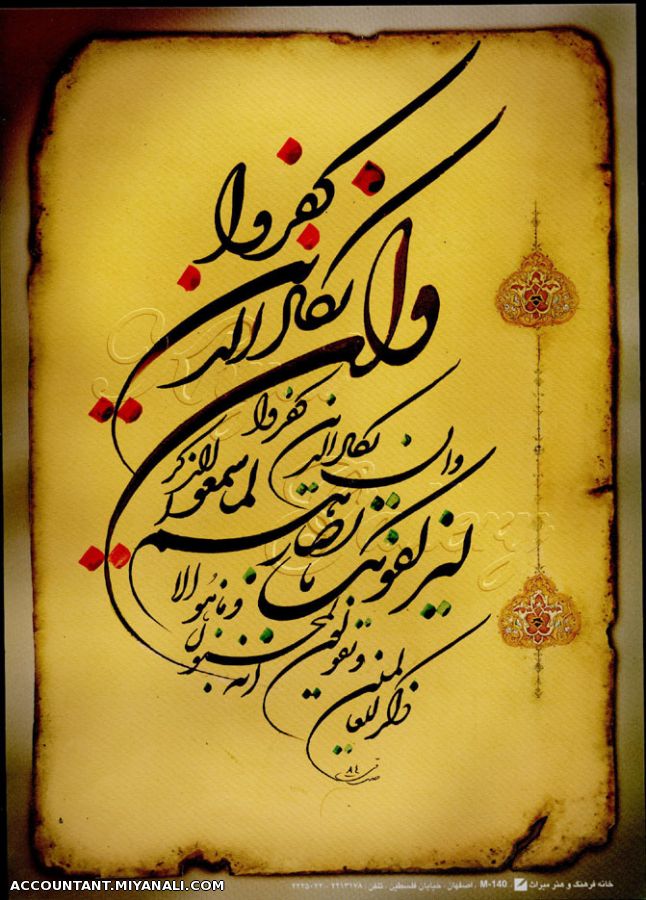 وان یکاد الذین کفروا
وان یکاد الذین کفروا
لیزلقونک بابصارهم
لما سمعوا الذکر
ویقولون انه لمجنون
وما هو الا
ذکر للعالمین
۸۴
خانه فرهنگ و هنر میراث M-140 . اصفهان . خیابان فلسطین . تلفن : ۲۲۱۳۱۷۸ - ۲۲۲۵۰۲۲
ACCOUNTANT.MIYANALI.COM